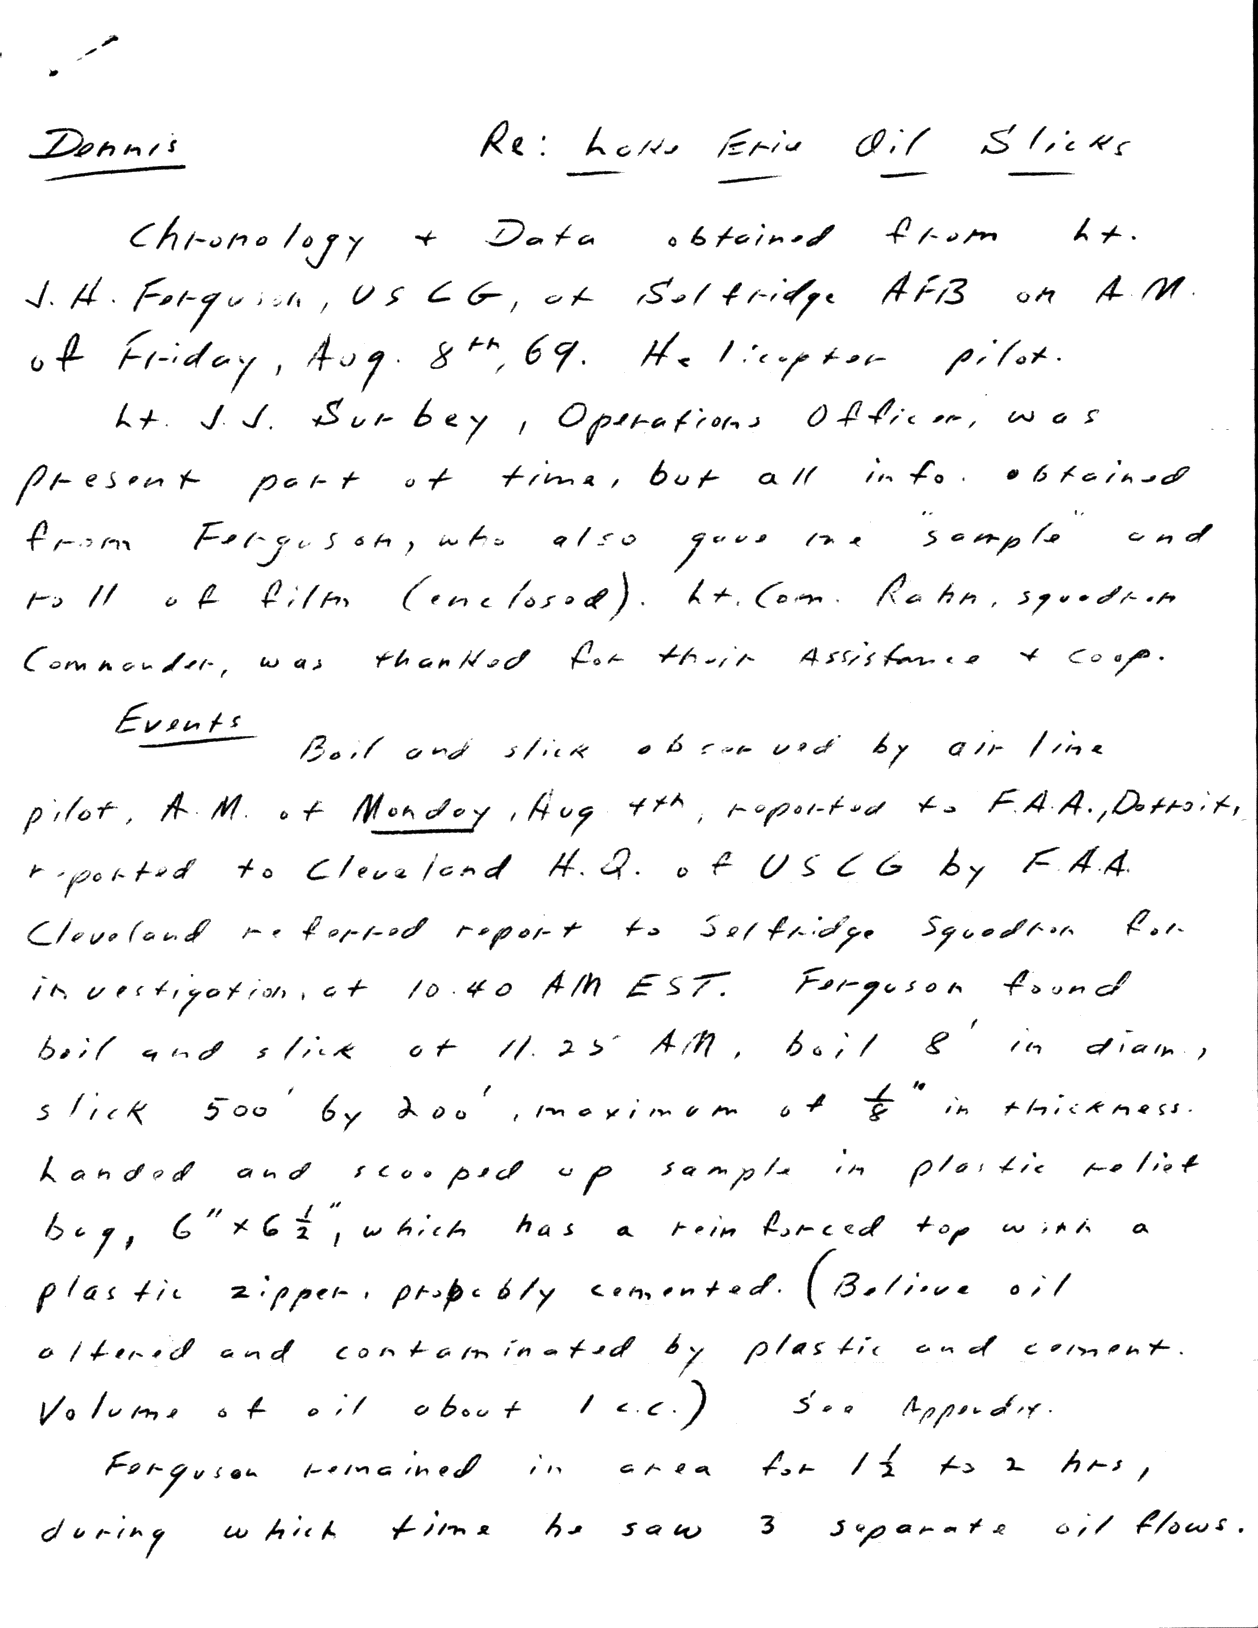 Dennis Re: Lake Erie Oil Slicks
Chronology + Data obtained from Lt.
J. H. Ferguson, USCG, at Selfridge AFB on A.M.
of Friday, Aug. 8th, 69. Helicopter pilot.
Lt. J. J. Surbey, Operations Officer, was
present part of time, but all info. obtained
from Ferguson, who also gave me "sample" and
roll of film (enclosed). Lt. Com. Rahn, squadron
Commander, was thanked for their Assistance + coop.
Events
Boil and slick observed by air line
pilot, A.M. of Monday, Aug 4th, reported to F.A.A., Detroit,
reported to Cleveland H.Q. of USCG by F.A.A.
Cleveland referred report to Selfridge Squadron for
investigation, at 10.40 AM EST. Ferguson found
boil and slick at 11.25 AM, boil 8' in diam.,
slick 500' by 200', maximum of 1/8" in thickness.
Landed and scooped up sample in plastic relief
bag, 6" x 6 1/2", which has a reinforced top with a
plastic zipper, probably cemented. (Believe oil
altered and contaminated by plastic and cement.
Volume of oil about 1 c.c.) See Appendix.
Ferguson remained in area for 1 1/2 to 2 hrs,
during which time he saw 3 separate oil flows.